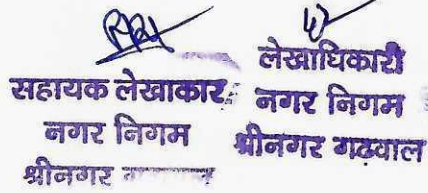 सहायक लेखाकार
नगर निगम
श्रीनगर
लेखाधिकारी
नगर निगम
श्रीनगर गढ़वाल